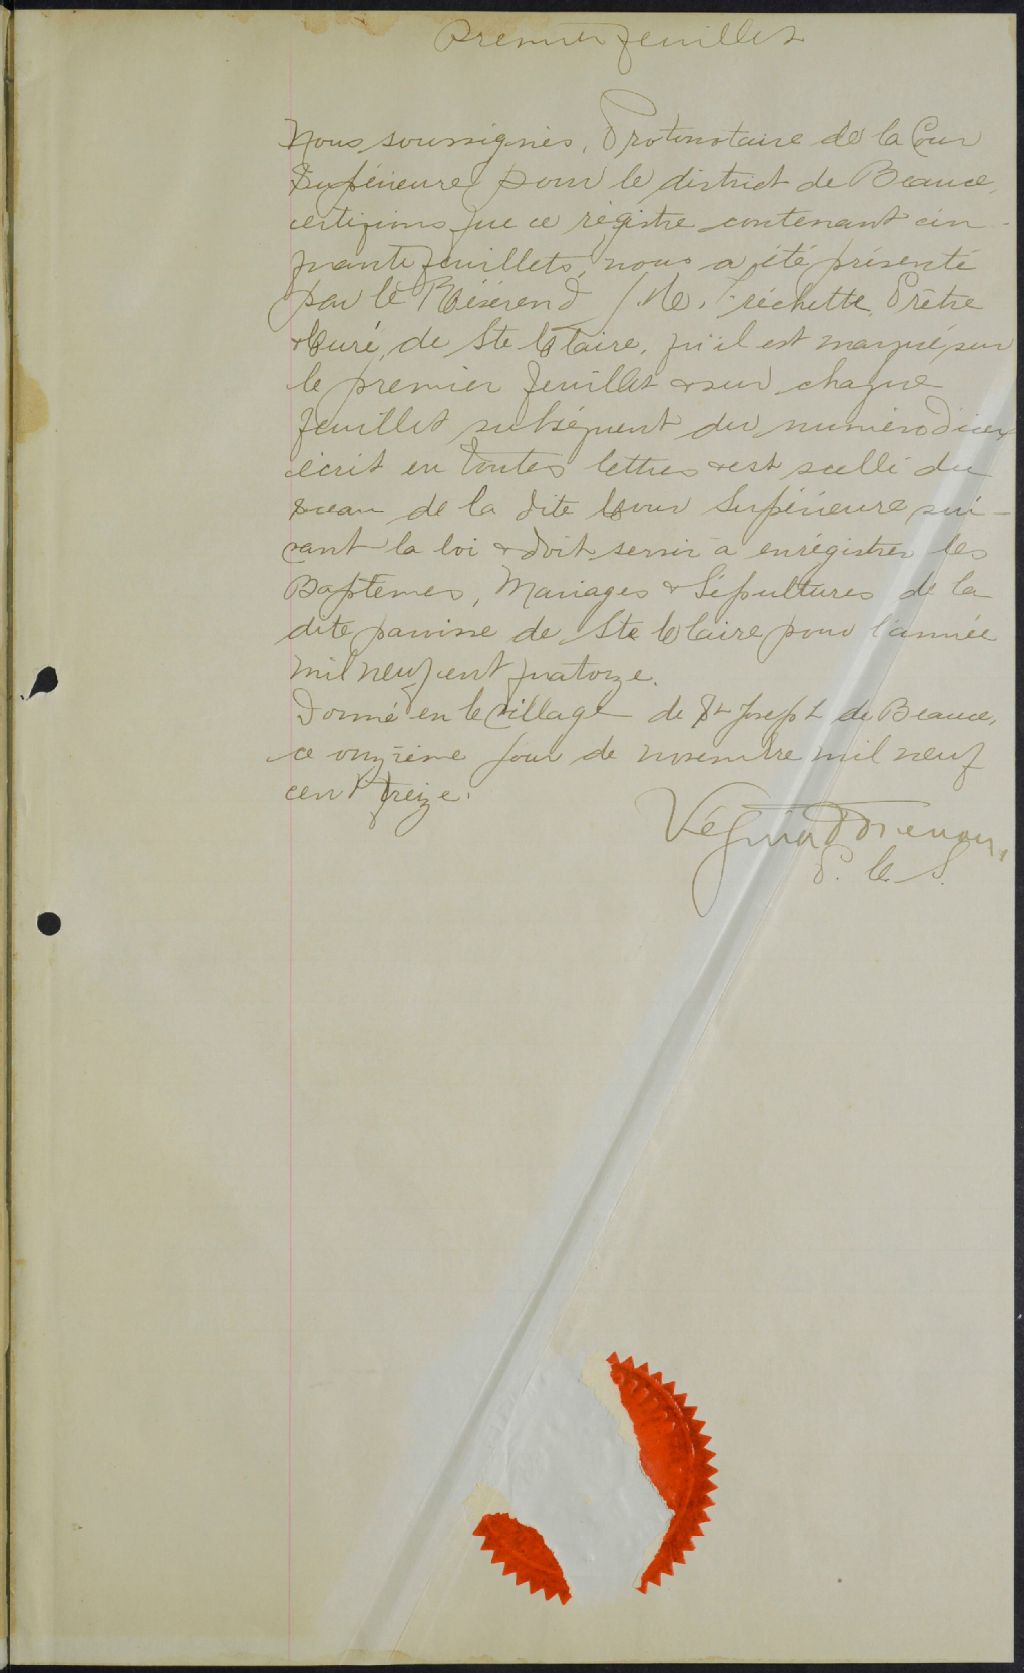 Premier feuillet
Nous soussignés, Protonotaire de la Cour
Supérieure pour le district de Beauce,
certifions que ce régistre contenant cin-
quante feuillets, nous a été présenté
par le Révérend Fréchette, Prêtre
& Curé, de Ste Claire, qu'il est marqué sur
le premier feuillet & sur chaque
feuillet subséquent du numéro d'iceux
écrit en toutes lettres & est scellé du
sceau de la dite Cour Supérieure sui-
vant la loi & doit servir à enrégistrer les
Baptemes, Mariages & Sépultures de la
dite paroisse de Ste Claire pour l'année
mil neuf cent quatorze.
Donné en le village de St Joseph de Beauce,
ce onzième jour de novembre mil neuf
cent treize.
P. C. S.